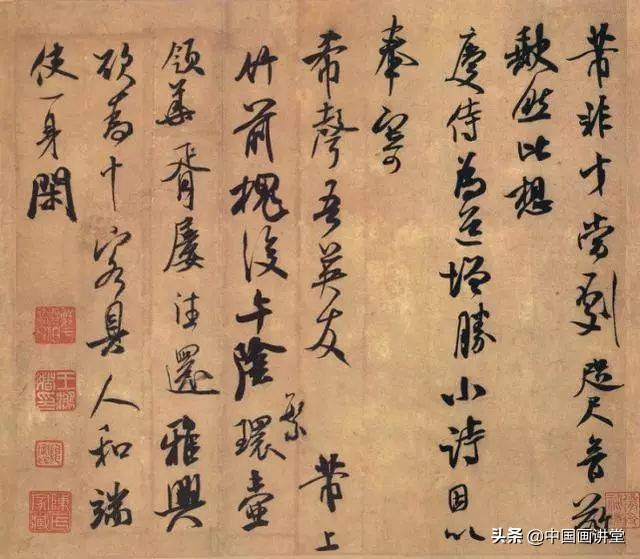 芾非才當劇咫尺音敬
然比想
慶侍為道增勝小詩因以
奉寄
希聲吾英友 芾上
竹前槐後午陰環壺
領華胥屢往還雅興
欲為十客具人和端
使一身閑
头条 @中国画讲堂